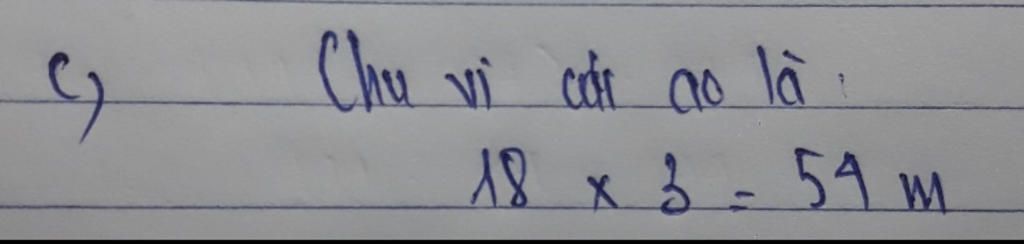 c) Chu vi cái ao là:
18 x 3 = 54 m